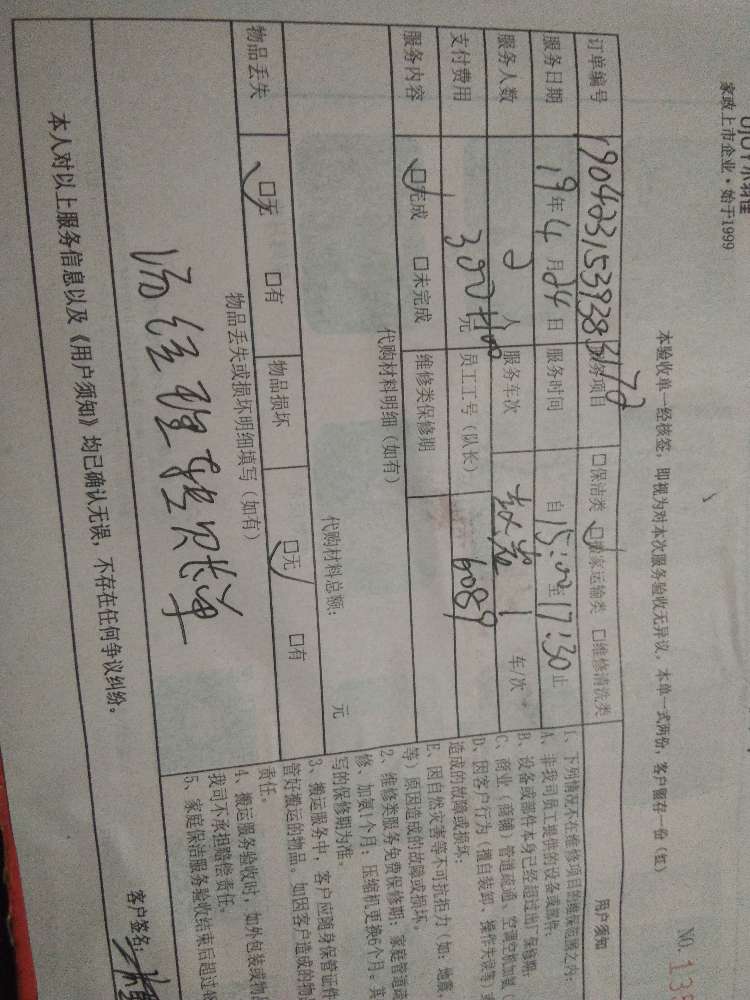 家政上市企业·始于1999
本验收单一经核签，即视为对本次服务验收无异议，本单一式两份，客户留存一份（红）
NO.
订单编号 服务项目 □保洁类 □搬家运输类 □维修清洗类
服务日期 19年4月24日 服务时间 自15:00至17:30止
服务人数 2人 服务车次 1车/次
支付费用 300元 员工工号（队长） 6089
服务内容 □完成 □未完成 维修类保修期
代购材料明细（如有）
代购材料总额： 元
物品丢失 □无 □有 物品损坏 □无 □有
物品丢失或损坏明细填写（如有）
本人对以上服务信息以及《用户须知》均已确认无误，不存在任何争议纠纷。
用户须知
1、下列情况不在维修项目的维保范围之内：
A、非我司员工提供的设备或部件；
B、设备或部件本身已经超过出厂保修期；
C、商业（商铺）管道疏通、空调空机加氨
D、因客户行为（擅自装卸、操作失误等）
造成的故障或损坏；
E、因自然灾害等不可抗拒力（如：地震、
等）原因造成的故障或损坏。
2、维修类服务免费保修期：家庭管道疏
修、加氨1个月；压缩机更换6个月。其
写的保修期为准。
3、搬运服务中，客户应随身保管证件
管好搬运的物品。如因客户造成的物
责任。
4、搬运服务验收时，如外包装或物
我司不承担赔偿责任。
5、家庭保洁服务验收结束后超过
客户签名：